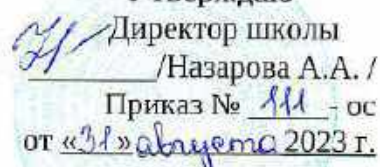 Директор школы
/Назарова А.А. /
Приказ № 111 - ос
от «31» августа 2023 г.